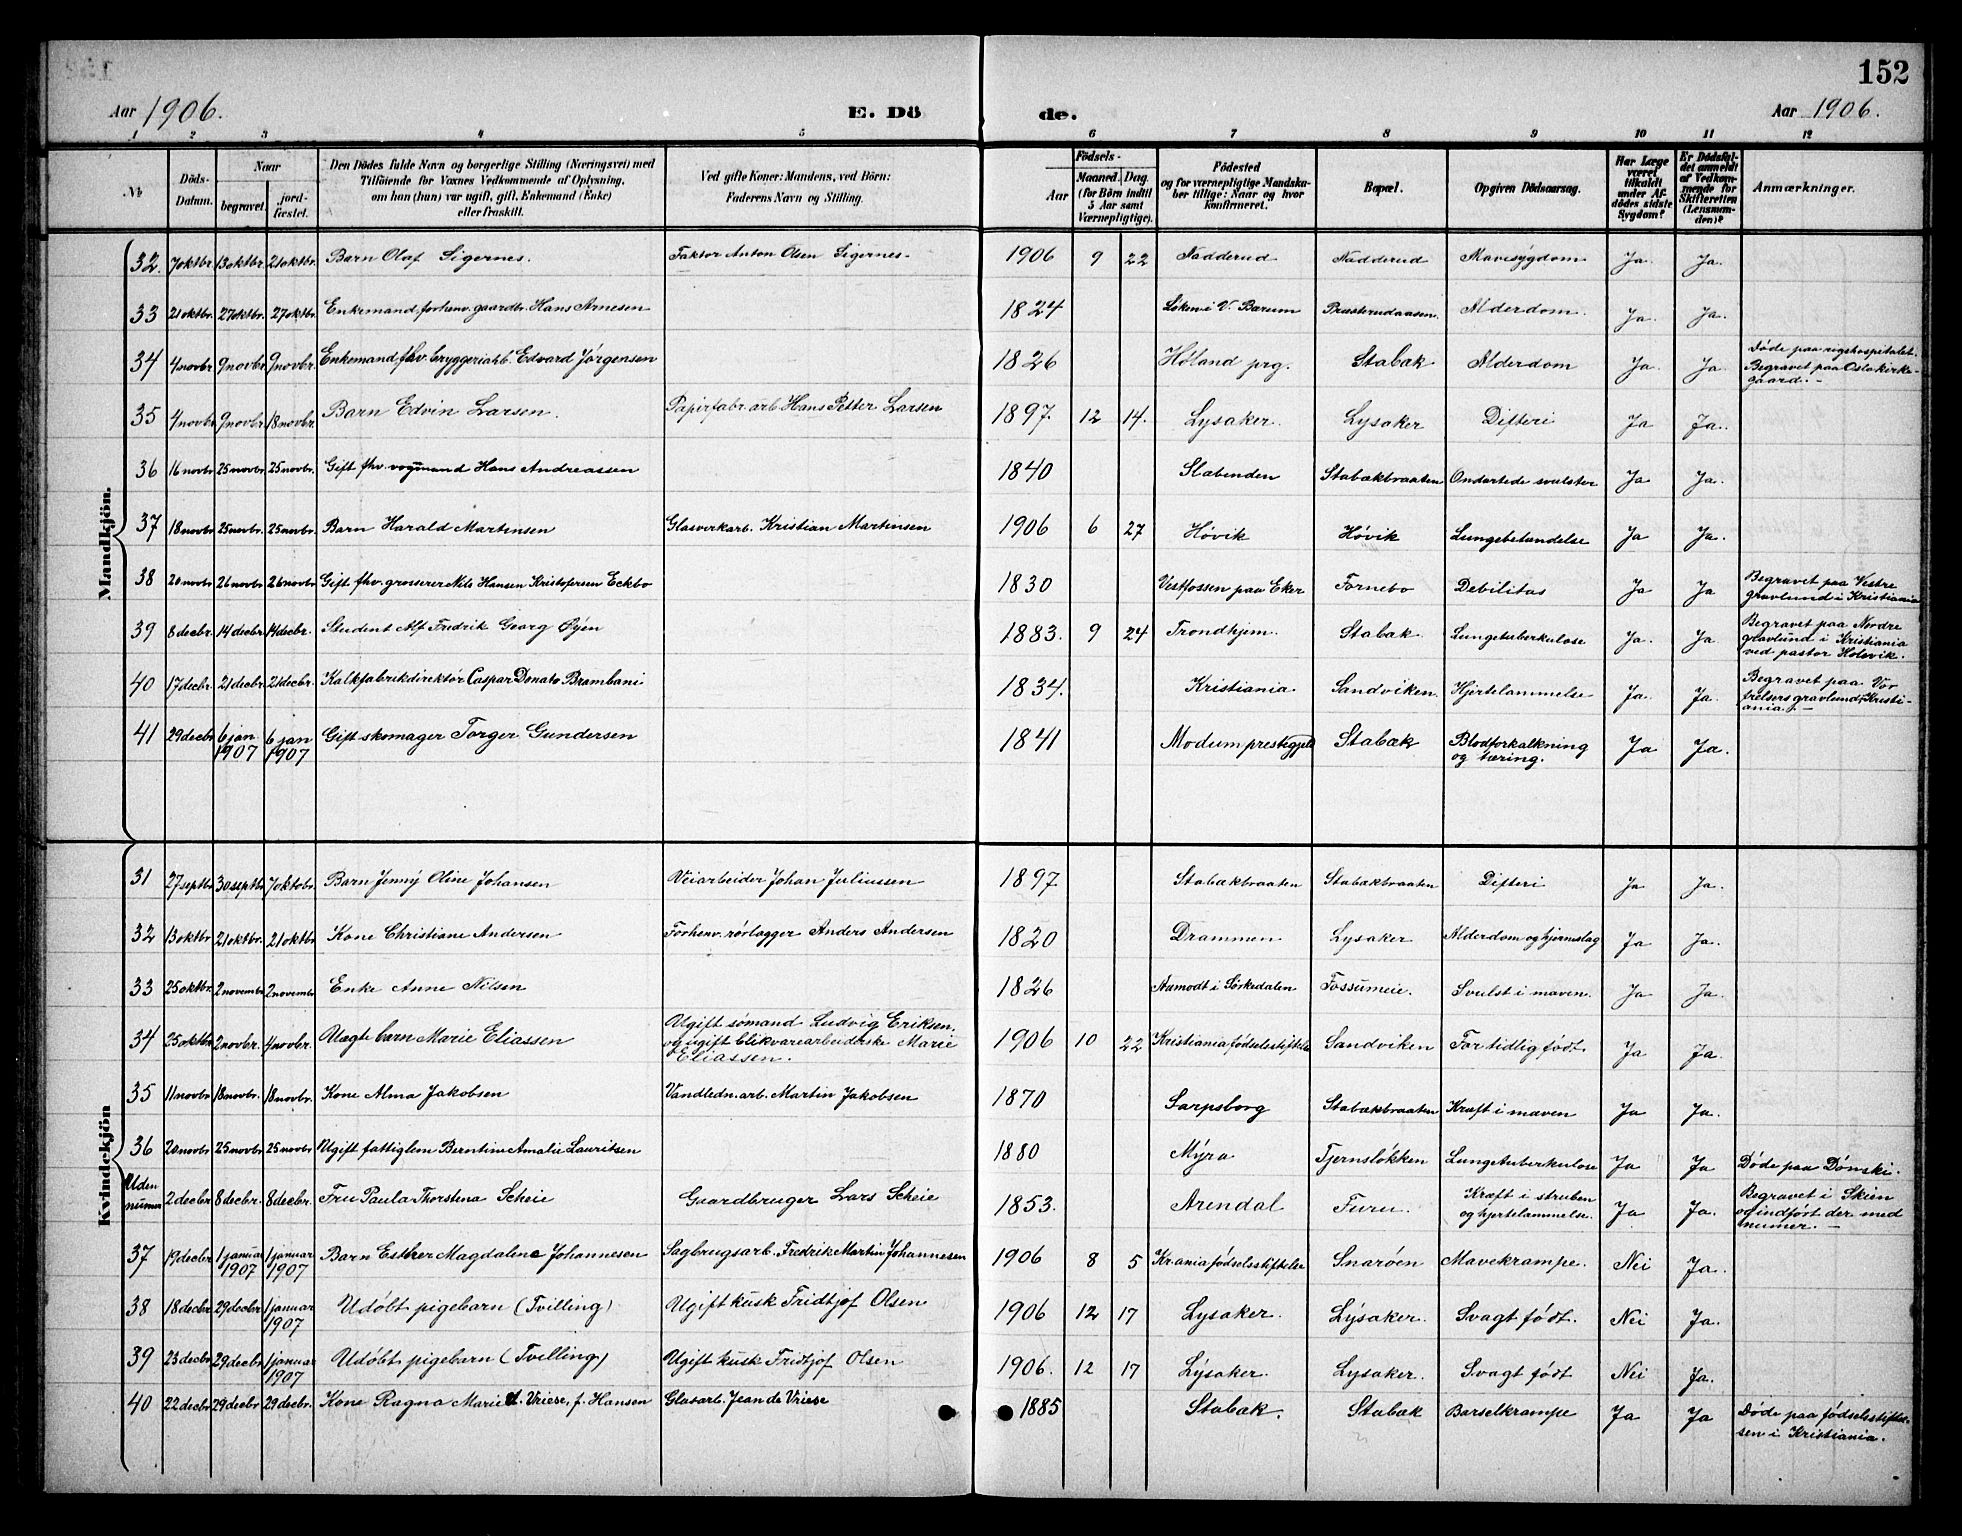 152
Aar 1906.
E. Dö
de.
Aar 1906.
1 2 3 4 5 6 7 8 9 10 11 12
№
Döds-Datum.
Naar
begravet.
jord-fæstet.
Den Dödes fulde Navn og borgerlige Stilling (Næringsvei) med Tilföiende for Voxnes Vedkommende af Oplysning, om han (hun) var ugift, gift, Enkemand (Enke) eller fraskilt.
Ved gifte Koner: Mandens, ved Börn: Faderens Navn og Stilling.
Födsels-
Aar
Maaned. Dag. (for Börn indtil 5 Aar samt Værnepligtige).
Födested og for værnepligtige Mandskaber tillige: Naar og hvor konfirmeret.
Bopæl.
Opgiven Dödsaarsag.
Har Læge været tilkaldt under Afdödes sidste Sygdom?
Er Dödsfaldet anmeldt af Vedkommende for Skifteretten (Lensmanden)?
Anmærkninger.
Mandkjön.
32. 7 oktbr. 13 oktbr. 21 oktbr. Barn Olaf Sigernes. Faktor Anton Olsen Sigernes. 1906 9 22 Nadderud Nadderud Mavesygdom Ja. Ja.
33 21 oktbr. 27 oktbr. 27 oktbr. Enkemand, forhenv. gaardbr. Hans Arnesen 1824 Løken i V. Bærum Præsterudaasen. Alderdom. Ja. Ja.
34 4 novbr. 9 novbr. 9 novbr. Enkemand, fhv. bryggeriarb. Edvard Jørgensen 1826 Høland prg. Stabæk Alderdom Ja. Ja. Døde paa rigshospitalet. Begravet paa Oslo kirkegaard. -
35 4 novbr. 9 novbr. 18 novbr. Barn Edvin Larsen. Papirfabr. arb. Hans Petter Larsen 1897. 12 14. Lysaker. Lysaker Difteri Ja Ja.
36 16 novbr. 25 novbr. 25 novbr. Gift fhv. vognmand Hans Andreassen 1840 Slæbenden Stabækbraaten Ondartede svulster Ja Ja.
37 18 novbr. 25 novbr. 25 novbr. Barn Harald Martinsen Glasverkarb. Kristian Martinsen 1906 6 27 Høvik Høvik Lungebetændelse Ja Ja.
38 20 novbr. 26 novbr. 26 novbr. Gift fhv. grosserer Nils Hansen Kristofersen Eckbo 1830 Vestfossen paa Eker Fornebo Debilitas Ja Ja Begravet paa Vestre gravlund i Kristiania
39 8 decbr. 14 decbr. 14 decbr. Student Alf Fredrik Georg Øyen 1883. 9 24 Trondhjem. Stabæk. Lungetuberkulose Ja. Ja Begravet paa Nordre gravlund i Kristiania ved pastor Holsvik.
40 17 decbr. 21 decbr. 21 decbr. Kalkfabrikdirektør Caspar Donato Brambani 1834. Kristiania Sandviken. Hjertelammelse Ja. Ja. Begravet paa Vor frelsers gravlund, Kristiania. -
41 29 decbr. 6 jan 1907 6 jan 1907 Gift skomager Torger Gundersen 1841 Modum prestegjeld Stabæk Blodforkalkning og tæring. Ja Ja.
Kvindekjön
31 27 septbr. 30 septbr. 7 oktobr. Barn Jenny Oline Johansen Veiarbeider Johan Juliussen 1897 Stabækbraaten Stabækbraaten Difteri Ja Ja.
32 13 oktbr. 21 oktbr. 21 oktbr. Kone Christiane Andersen Forhenv. rørlægger Anders Andersen 1820 Drammen Lysaker Alderdom og hjerneslag Ja Ja.
33 25 oktbr. 2 novembr 2 novembr Enke Anne Nilsen 1826 Aamodt i Sørkedalen Fossumeie. Svulst i maven. Ja Ja.
34 25 oktbr. 2 novbr. 4 novbr. Uægte barn Marie Eliassen Ugift sømand Ludvig Eriksen. og ugift blikvarearbeiderske Marie Eliassen. 1906 10 22 Kristiania fødselsstiftelse Sandviken For tidlig født. Ja Ja.
35 11 novbr. 18 novbr. 18 novbr. Kone Alma Jakobsen Vandledn. arb. Martin Jakobsen 1870 Sarpsborg Stabækbraaten Kræft i maven Ja Ja.
36 20 novbr. 25 novbr. 25 novbr. Ugift fattiglem Berntine Amalie Lauritsen 1880 Myra Tjernsløkken Lungetuberkulose Ja Ja Døde paa Dønski.
Uden numer 2 decbr. 8 decbr. 8 decbr. Fru Paula Thorstena Scheie Gaardbruger Lars Scheie 1853. Arendal Furu. Kræft i struben og hjertelammelse. Ja Ja. Begravet i Skien og indført der med numer. -
37 19 decbr. 1 januar 1907 1 januar 1907 Barn Esther Magdalene Johannesen Sagbrugsarb. Fredrik Martin Johannesen 1906 8 5 Kr.ania fødselsstiftelse Snarøen Mavekrampe. Nei Ja.
38 18 decbr. 29 decbr. 1 januar 1907 Udøbt pigebarn (Tvilling) Ugift kusk Fridtjof Olsen 1906 12 17 Lysaker. Lysaker. Svagt født. Nei Ja.
39 23 decbr. 29 decbr. 1 januar 1907 Udøbt pigebarn (Tvilling) Ugift kusk Fridtjof Olsen 1906. 12 17 Lysaker. Lysaker. Svagt født Nei Ja.
40 22 decbr. 29 decbr. 29 decbr. Kone Ragna Marie d. Vriese, f. Hansen Glasarb. Jean de Vriese 1885 Stabæk. Stabæk Barselkrampe Ja Ja Døde paa fødselsstiftelsen i Kristiania.